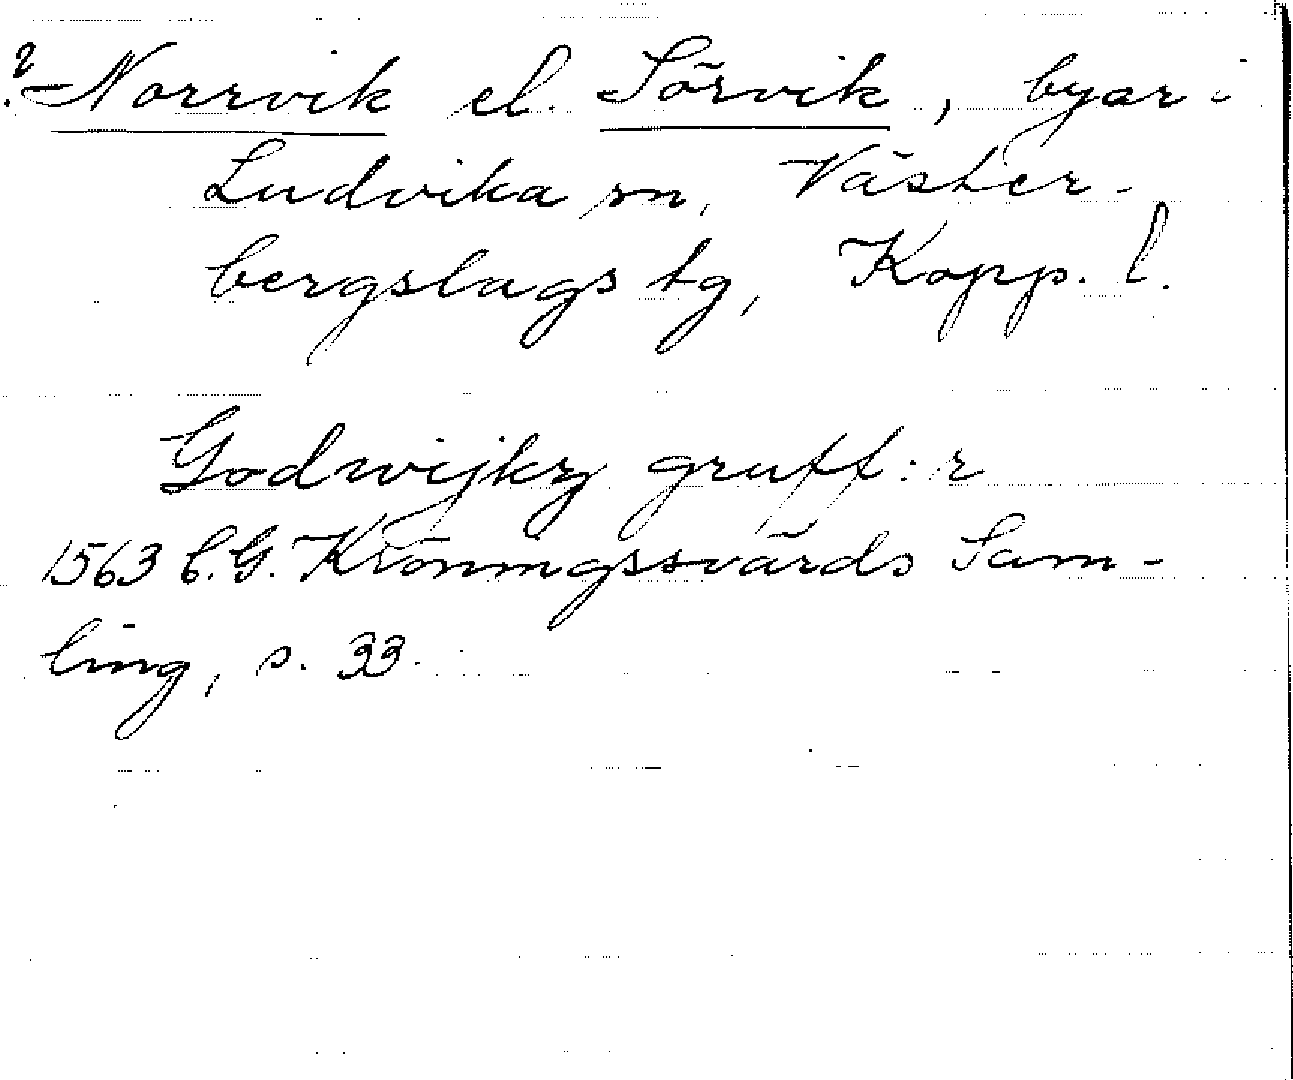 ? Norrvik el. Sörvik, byar i
Ludvika sn, Väster-
bergslags tg, Kopp. l.
Godwijkz gruff:r
1563 C.G. Kröningssvärds Sam-
ling, s. 33.